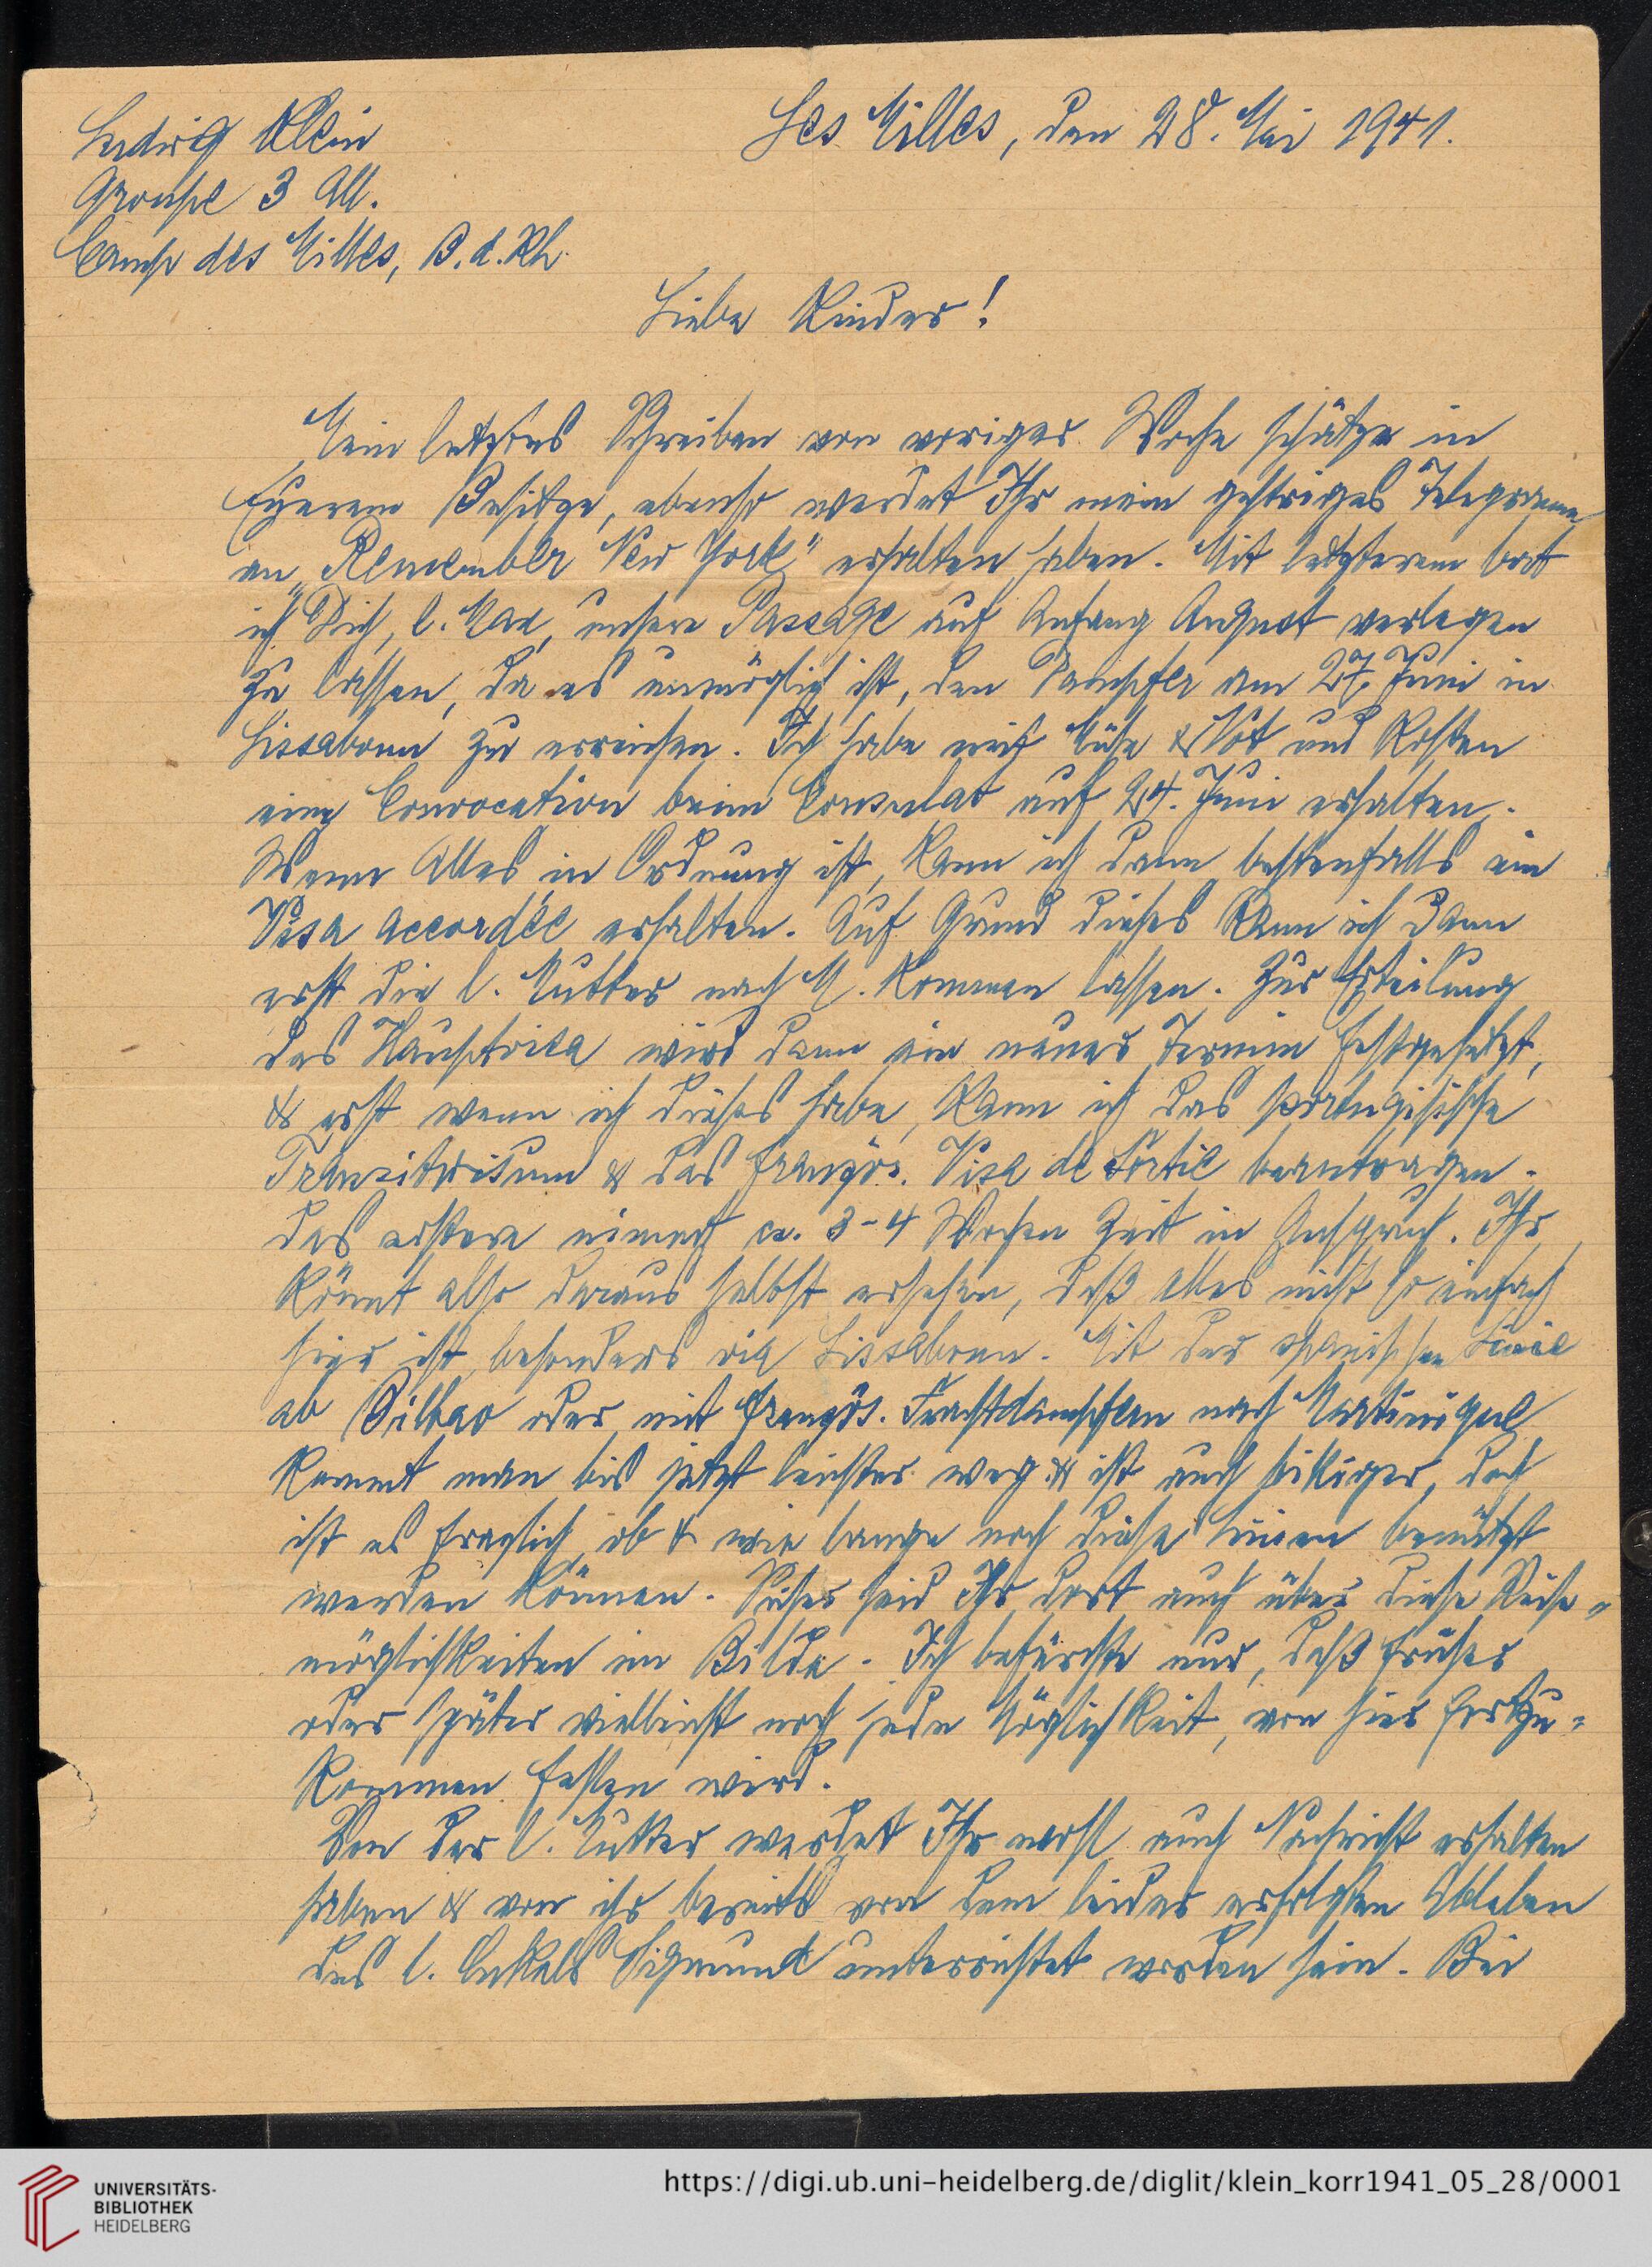 Ludwig Klein
Groupe 3 All.
Camp des Milles, B.d.Rh.
Les Milles, den 28. Mai 1941.
Liebe Kinder!
Mein letztes Schreiben von voriger Woche schätze in
Eyerem Besitze, ebenso werdet Ihr mein gestriges Telegramm
an „Remember New York" erhalten haben. Mit letzterem bat
ich Dich, l. Max, unsere Passage auf Anfang August verlegen
zu lassen, da es unmöglich ist, den Dampfer am 27. Juni in
Lissabonn zu erreichen. Ich habe mit Mühe & Not und Kosten
eine Convocation beim Consulat auf 24. Juni erhalten.
Wenn Alles in Ordnung ist, kann ich dann bestenfalls ein
Visa accordée erhalten. Auf Grund dieses kann ich dann
erst die l. Mutter nach M. kommen lassen. Zur Erteilung
des Hauptvisa wird dann ein neuer Termin festgesetzt,
& erst wenn ich dieses habe, kann ich das portugisische
Transitvisum & das französ. Visa de Sortie beantragen.
Das erstere nimmt ca. 3-4 Wochen Zeit in Anspruch. Ihr
könnt also daraus selbst ersehen, daß Alles nicht so einfach
hier ist, besonders via Lissabonn. Mit der spanischen Linie
ab Bilbao oder mit französ. Frachtdampfern nach Martinique
kommt man bis jetzt leichter weg & ist auch billiger, doch
ist es fraglich, ob & wie lange noch diese Linien benützt
werden können. Sicher seid Ihr dort auch über diese Reise-
möglichkeiten im Bilde. Ich befürchte nur, daß früher
oder später vielleicht noch jede Möglichkeit, von hier fortzu-
kommen fehlen wird.
Von der l. Mutter werdet Ihr wohl auch Nachricht erhalten
haben & von ihr bereits von dem leider erfolgten Ableben
des l. Onkels Sigmund unterrichtet worden sein. Bei
UNIVERSITÄTS-
BIBLIOTHEK
HEIDELBERG
https://digi.ub.uni-heidelberg.de/diglit/klein_korr1941_05_28/0001